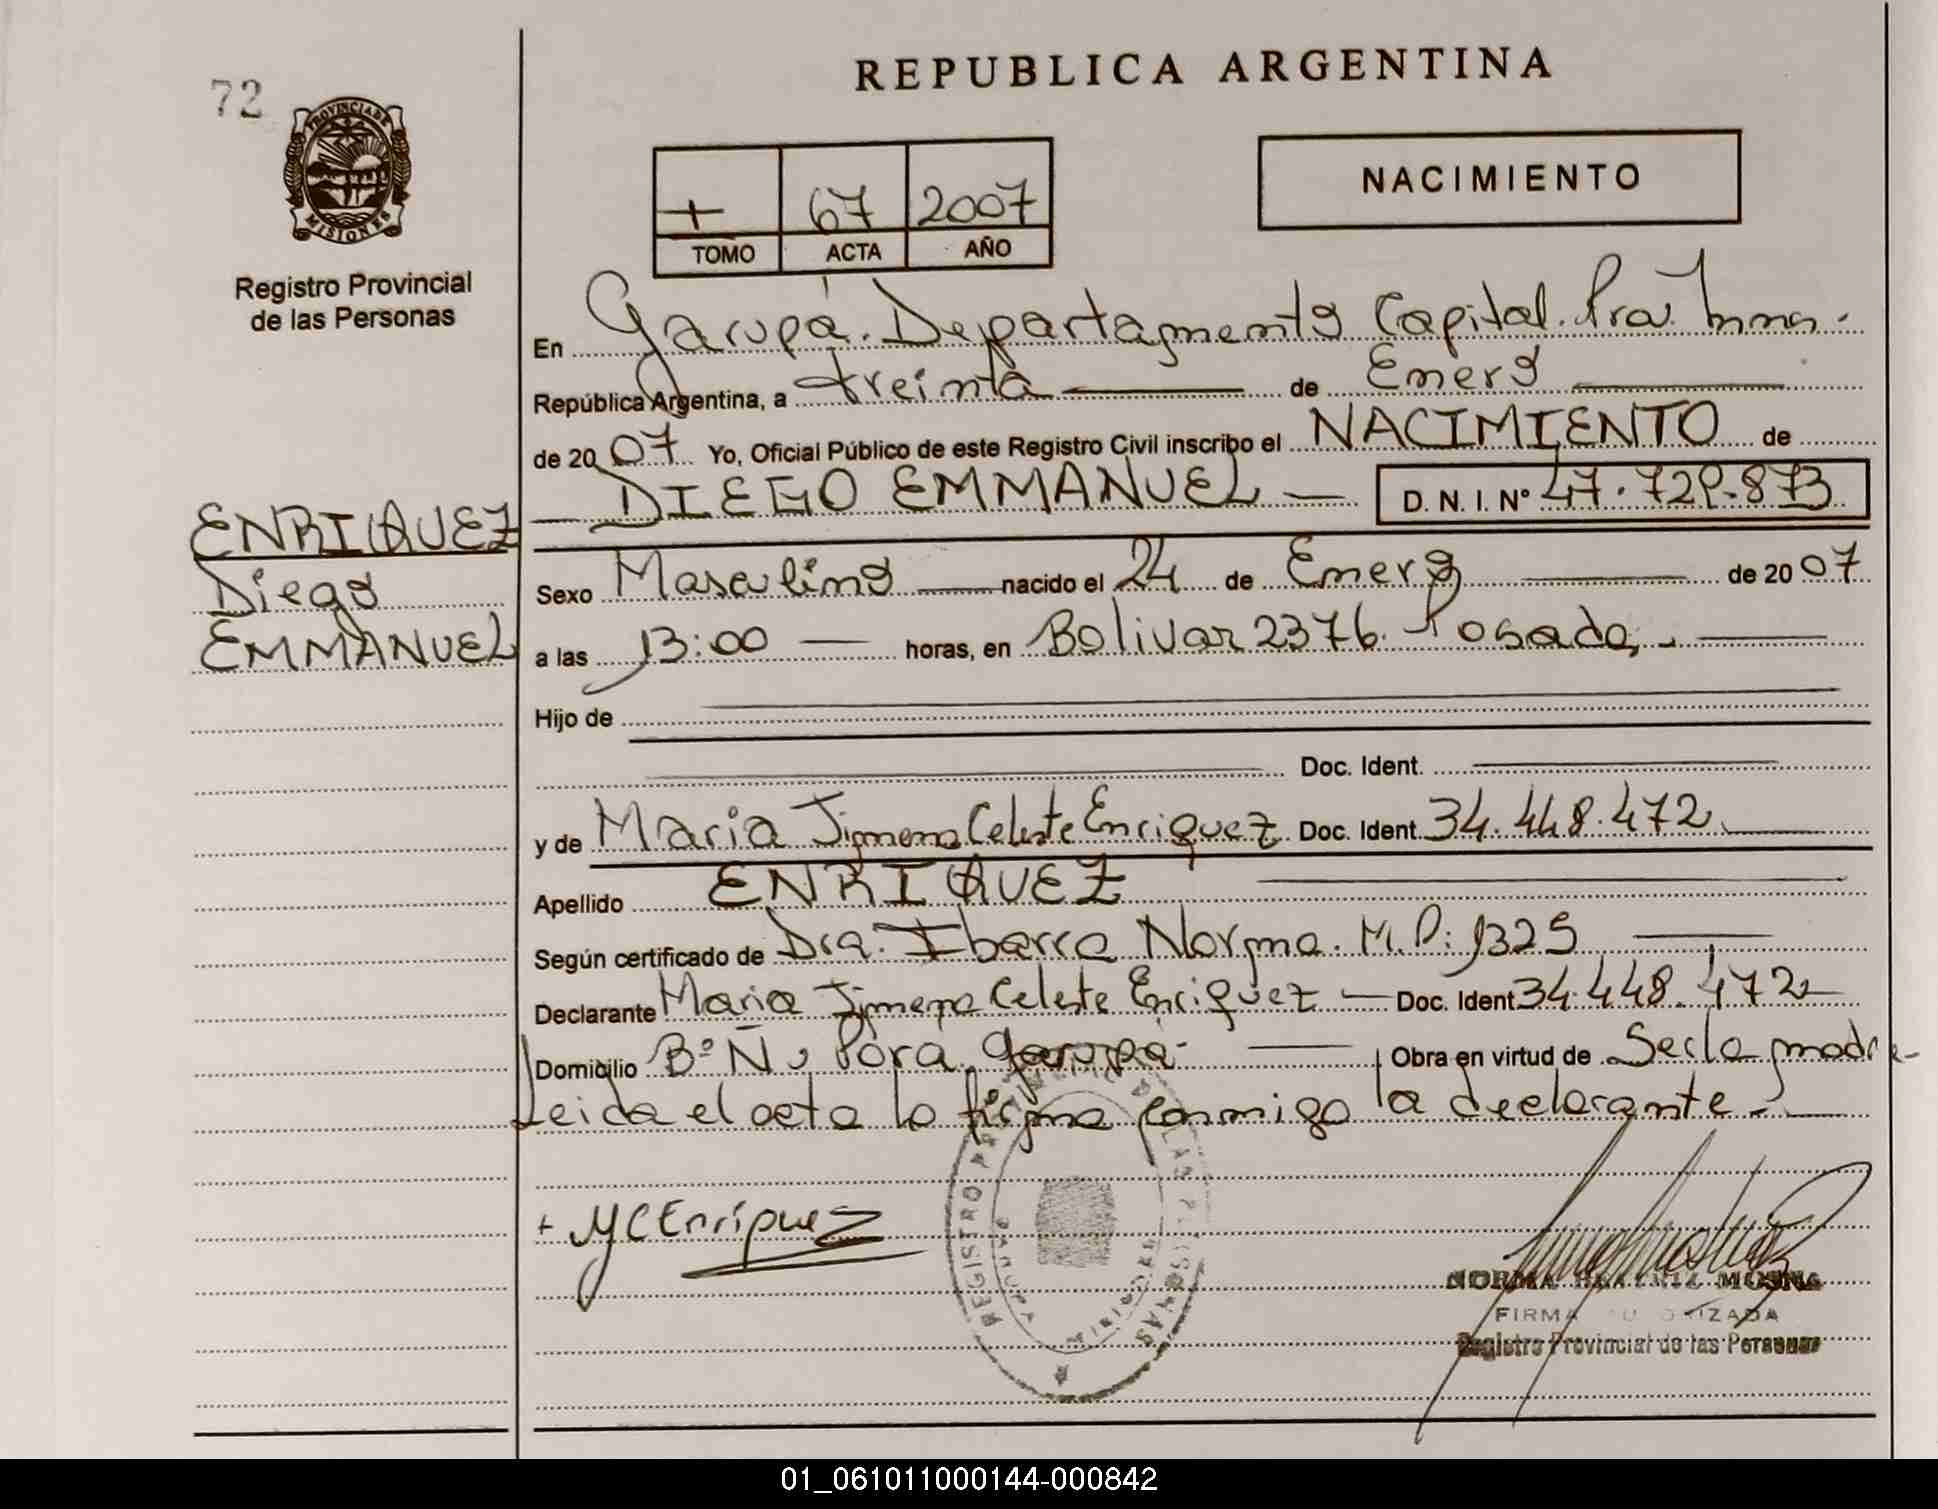 REPUBLICA ARGENTINA
72
PROVINCIA DE MISIONES
Registro Provincial
de las Personas
NACIMIENTO
+ 67 2007
TOMO ACTA AÑO
En Garupá. Departamento Capital.
República Argentina, a treinta de Enero
de 2007 Yo, Oficial Público de este Registro Civil inscribo el NACIMIENTO de
DIEGO EMMANUEL D. N. I. Nº 47.729.873
ENRIQUEZ
Diego
EMMANUEL
Sexo Masculino nacido el 24 de Enero de 2007
a las 13:00 horas, en Bolivar 2376. Posadas
Hijo de
Doc. Ident.
y de Maria Jimena Celeste Enriquez Doc. Ident. 34.448.472
Apellido ENRIQUEZ
Según certificado de Dra. Ibarra Norma. M.P: 1325
Declarante Maria Jimena Celeste Enriquez Doc. Ident 34.448.472
Domicilio Bº Ñu Pora. Garupá Obra en virtud de Ser la madre
Leida el acta la firma conmigo la declarante
+ MCEnriquez
REGISTRO DE LAS PERSONAS
GARUPA MISIONES
NORMA BEATRIZ
FIRMA AUTORIZADA
Registro Provincial de las Personas
01_061011000144-000842